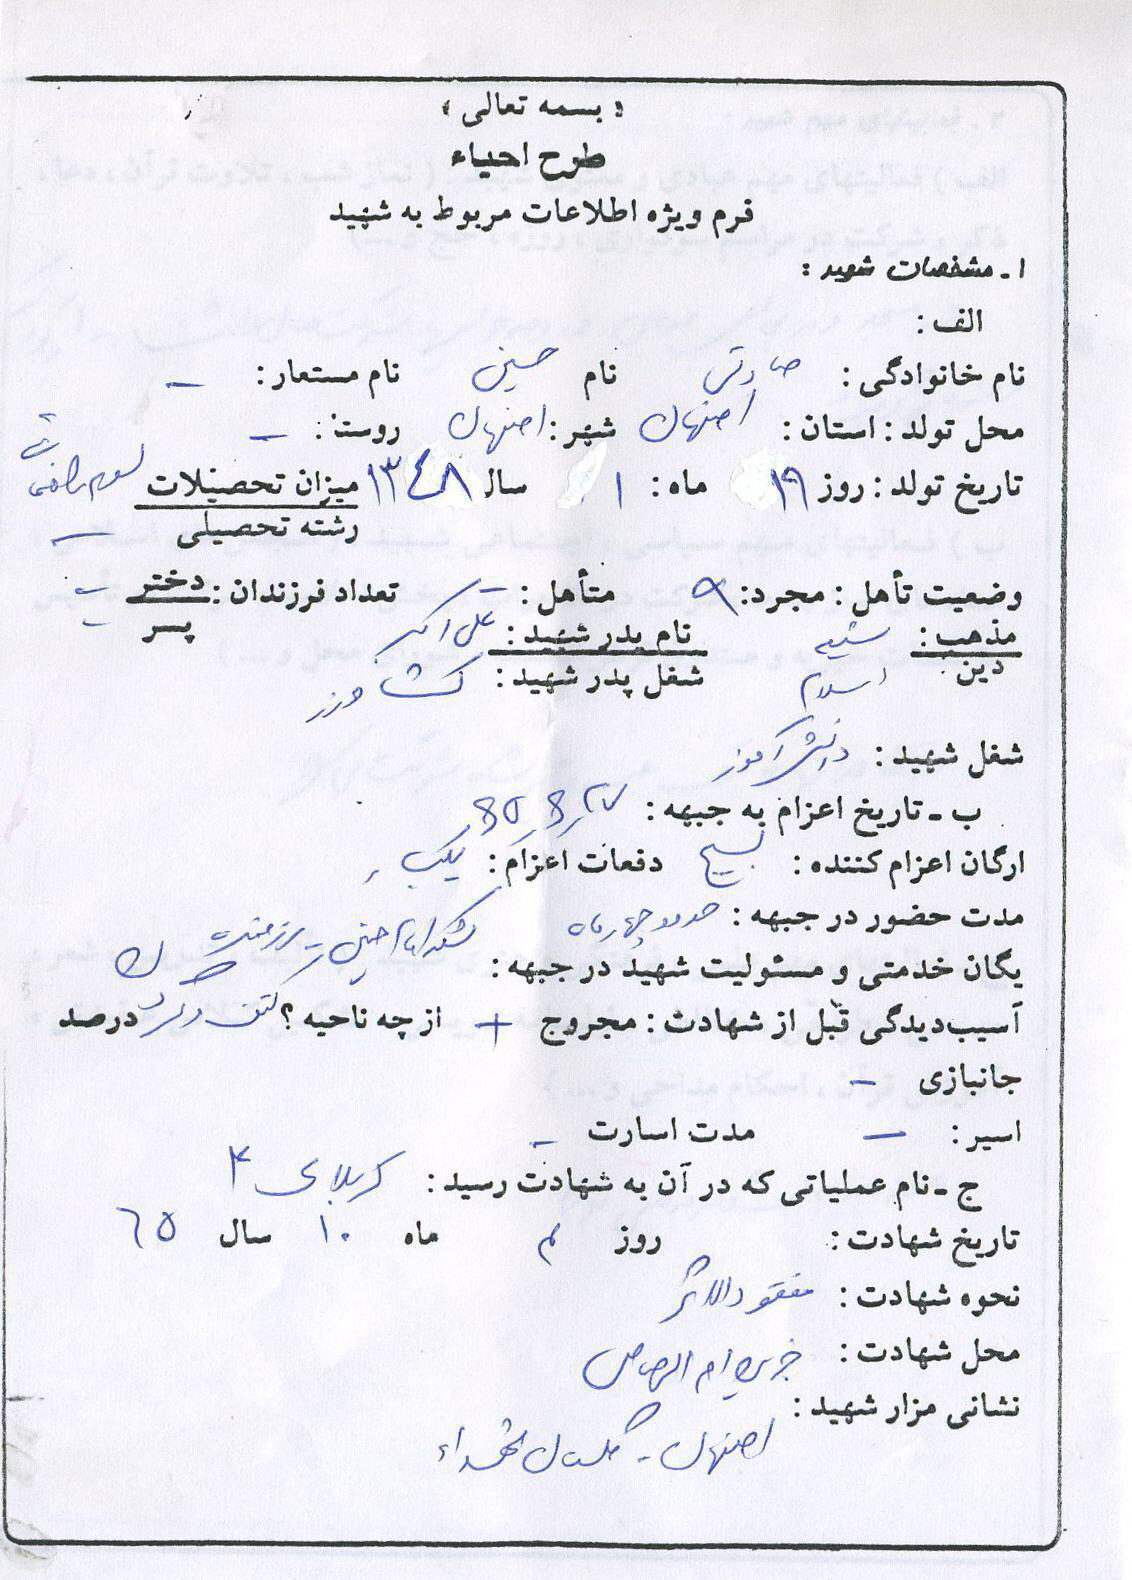 « بسمه تعالی »
طرح احیاء
فرم ویژه اطلاعات مربوط به شهید
۱ـ مشخصات شهید :
الف :
نام خانوادگی : صادقی نام حسین نام مستعار : ـ
محل تولد : استان : اصفهان شهر : اصفهان روست : ـ
تاریخ تولد : روز ۱۹ ماه : ۱ سال ۱۳٤۸ میزان تحصیلات سوم
رشته تحصیلی ـ
وضعیت تأهل : مجرد : متأهل : ـ تعداد فرزندان : دختر ـ
پسر ـ
مذهب : شیعه نام پدر شهید : علی اکبر
دین اسلام شغل پدر شهید : کشاورز
شغل شهید : دانش آموز
ب ـ تاریخ اعزام به جبهه :
ارگان اعزام کننده : بسیج دفعات اعزام : یکبار
مدت حضور در جبهه : حدود چهار ماه
یگان خدمتی و مسئولیت شهید در جبهه : لشکر امام حسین ـ رزمنده
آسیب‌دیدگی قبل از شهادت : مجروح + از چه ناحیه ؟ کتف و درصد
جانبازی ـ
اسیر : ـ مدت اسارت ـ
ج ـ نام عملیاتی که در آن به شهادت رسید : کربلای ۴
تاریخ شهادت : روز ۴ ماه ۱۰ سال ٦٥
نحوه شهادت : مفقودالاثر
محل شهادت : جزیره ام الرصاص
نشانی مزار شهید :
اصفهان ـ گلستان شهداء